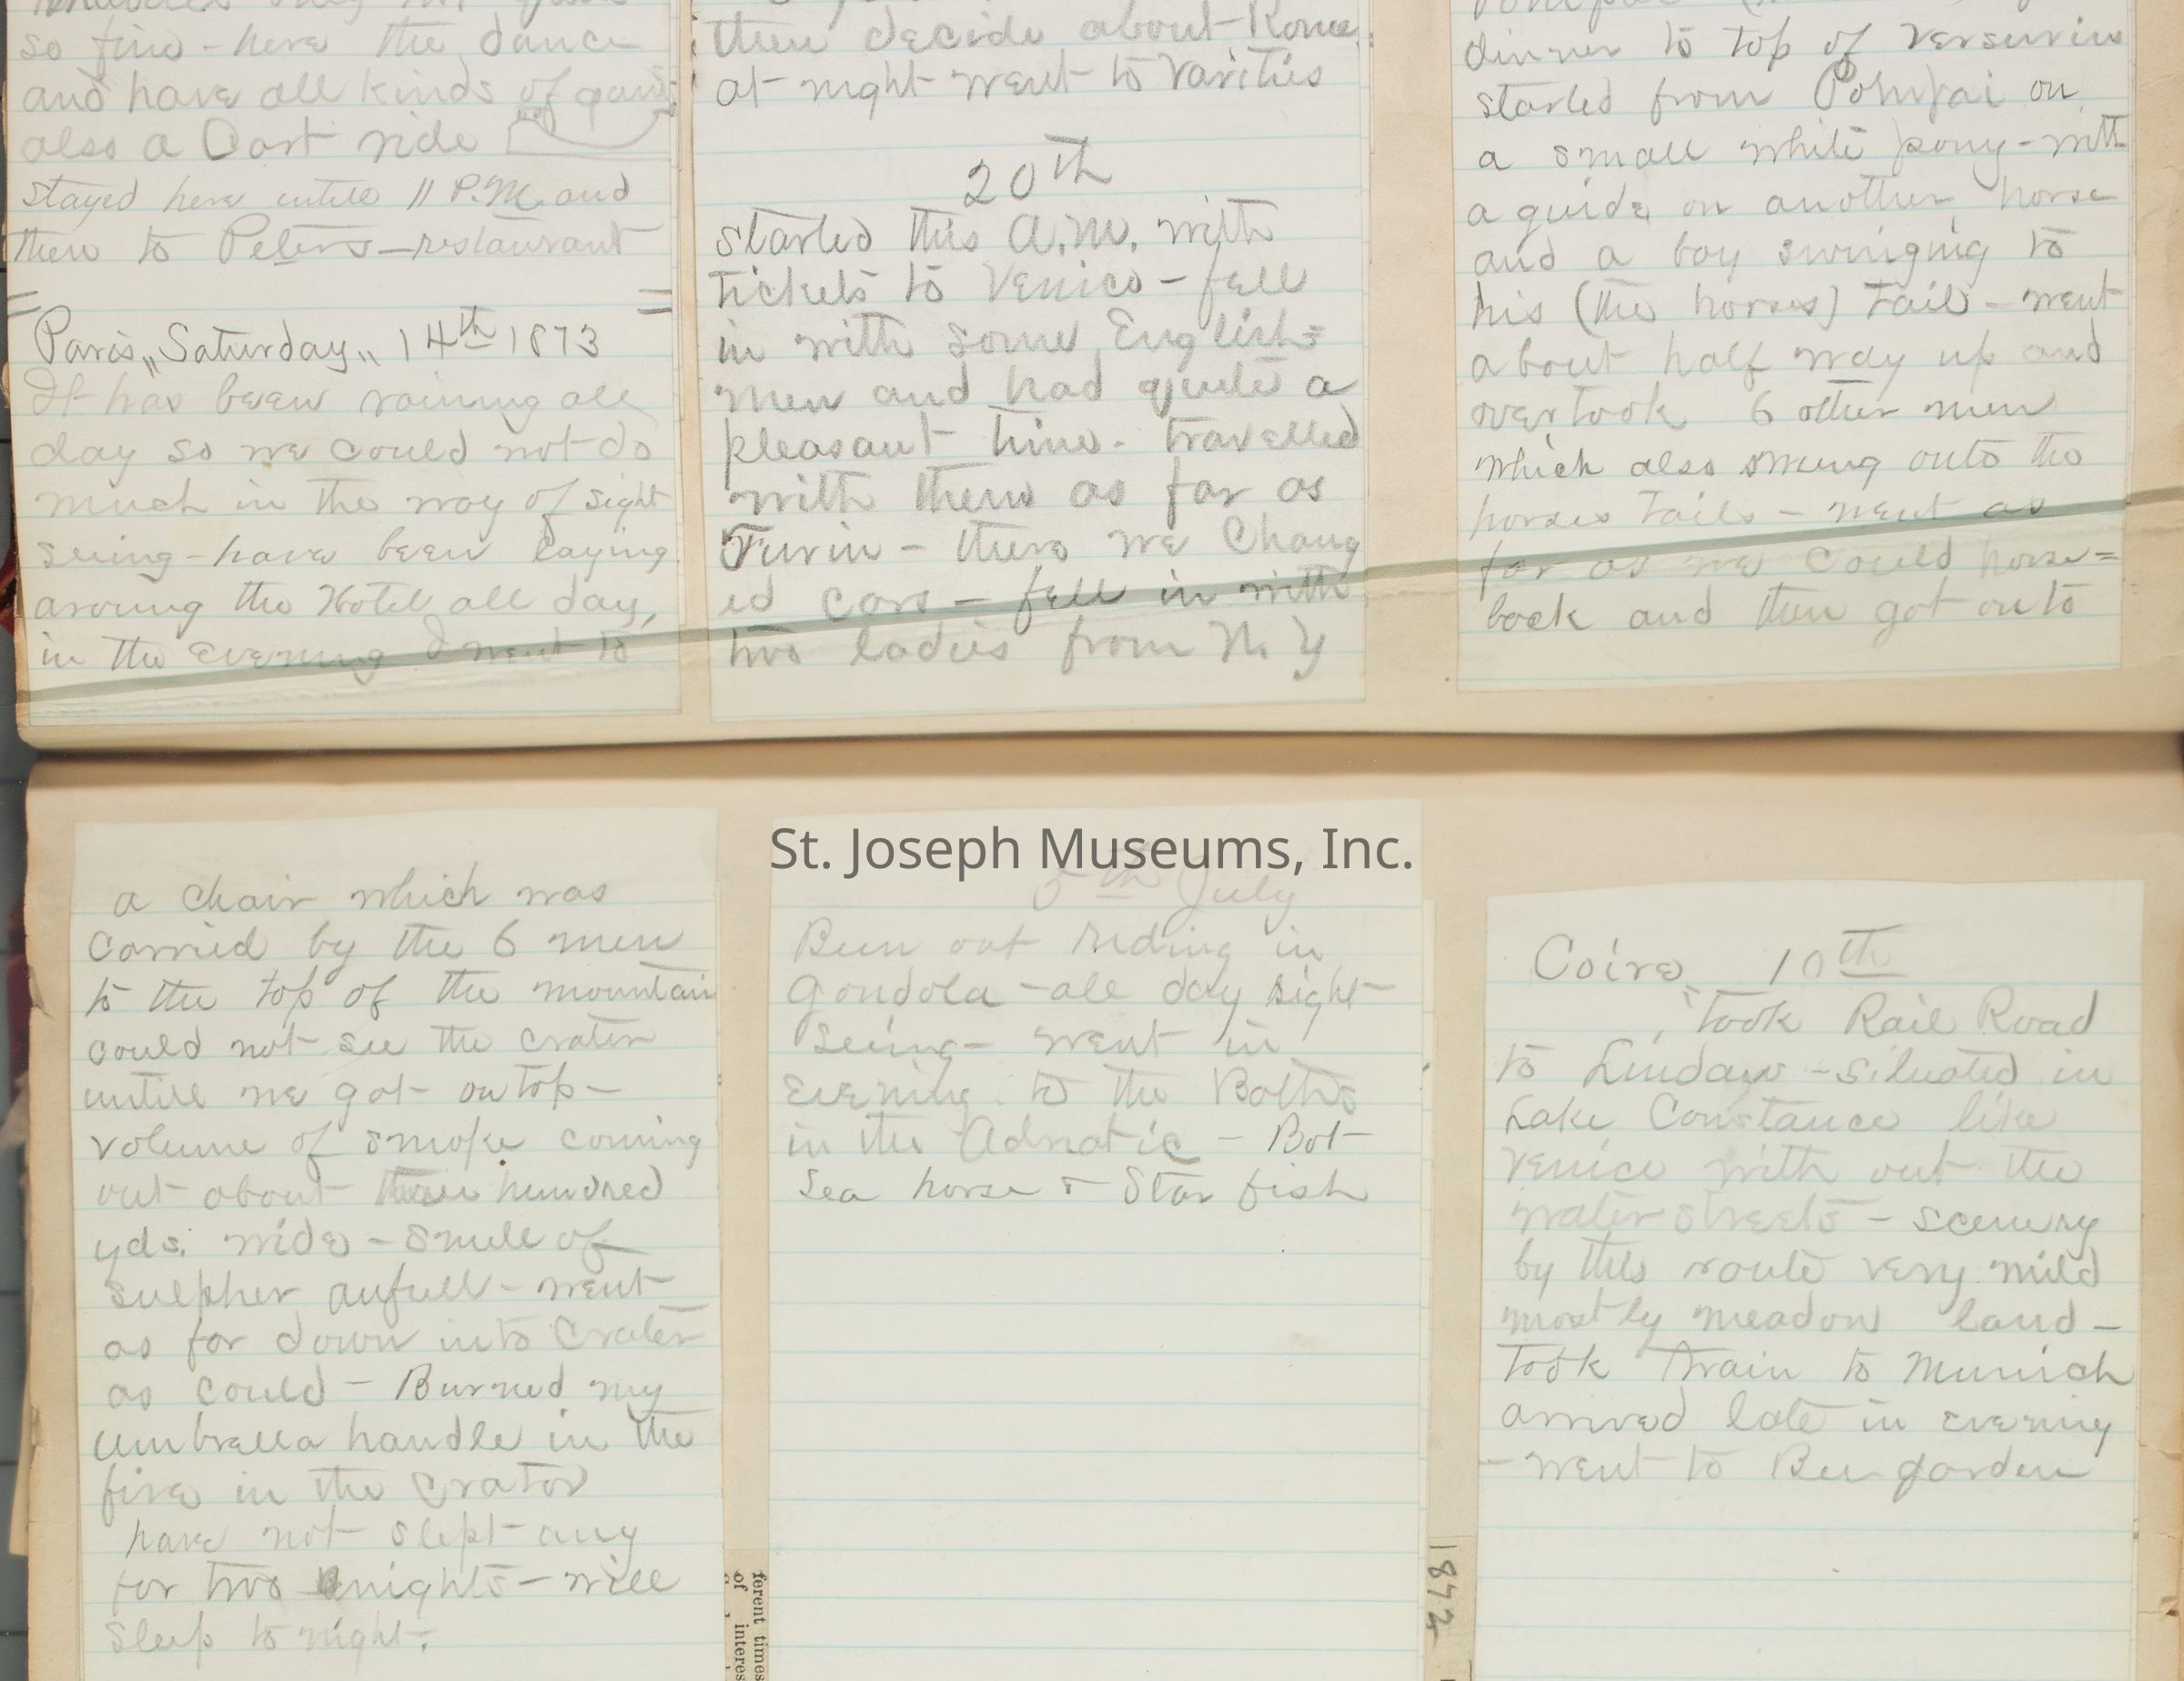 so fine - here the dance
and have all kinds of games
also a Cart ride
stayed here untill 11 P.M. and
then to Peters - restaurant
Paris „Saturday„ 14th 1873
It has been raining all
day so we could not do
much in the way of sight
seeing - have been laying
aroung the Hotel all day,
in the evening I went to
then decide about Rome
at night went to Varities
20th
started this A.M. with
tickets to Venice - fell
in with some English=
men and had quite a
pleasant time - travelled
with them as far as
Turin - there we Chang
ed cars - fell in with
two ladies from N. Y
dinner to top of Versuvius
started from Pompai on
a small white pony - with
a guide on another horse
and a boy swinging to
his (the horses) tail - went
about half way up and
overtook 6 other men
which also swung onto the
horses tails - went as
far as we could horse=
back and then got onto
a chair which was
carried by the 6 men
to the top of the mountain
could not see the crater
untill we got on top -
volume of smoke coming
out about three hundred
yds. wide - smell of
sulpher aufull - went
as far down into Crater
as could - Burned my
umbrella handle in the
fire in the Crator
have not slept any
for two nights - will
sleep to night.
St. Joseph Museums, Inc.
5th July
Been out riding in
Gondola - all day sight
seeing - went in
evening to the Baths
in the Adriatic - Bot
Sea horse & Star fish
Coire 10th
took Rail Road
to Lindaw - situated in
Lake Constance like
Venice with out the
water streets - scenery
by this route very mild
mostly meadow land -
took train to Munich
arrived late in evening
- went to Beer garden
ferent times
of interes
1872